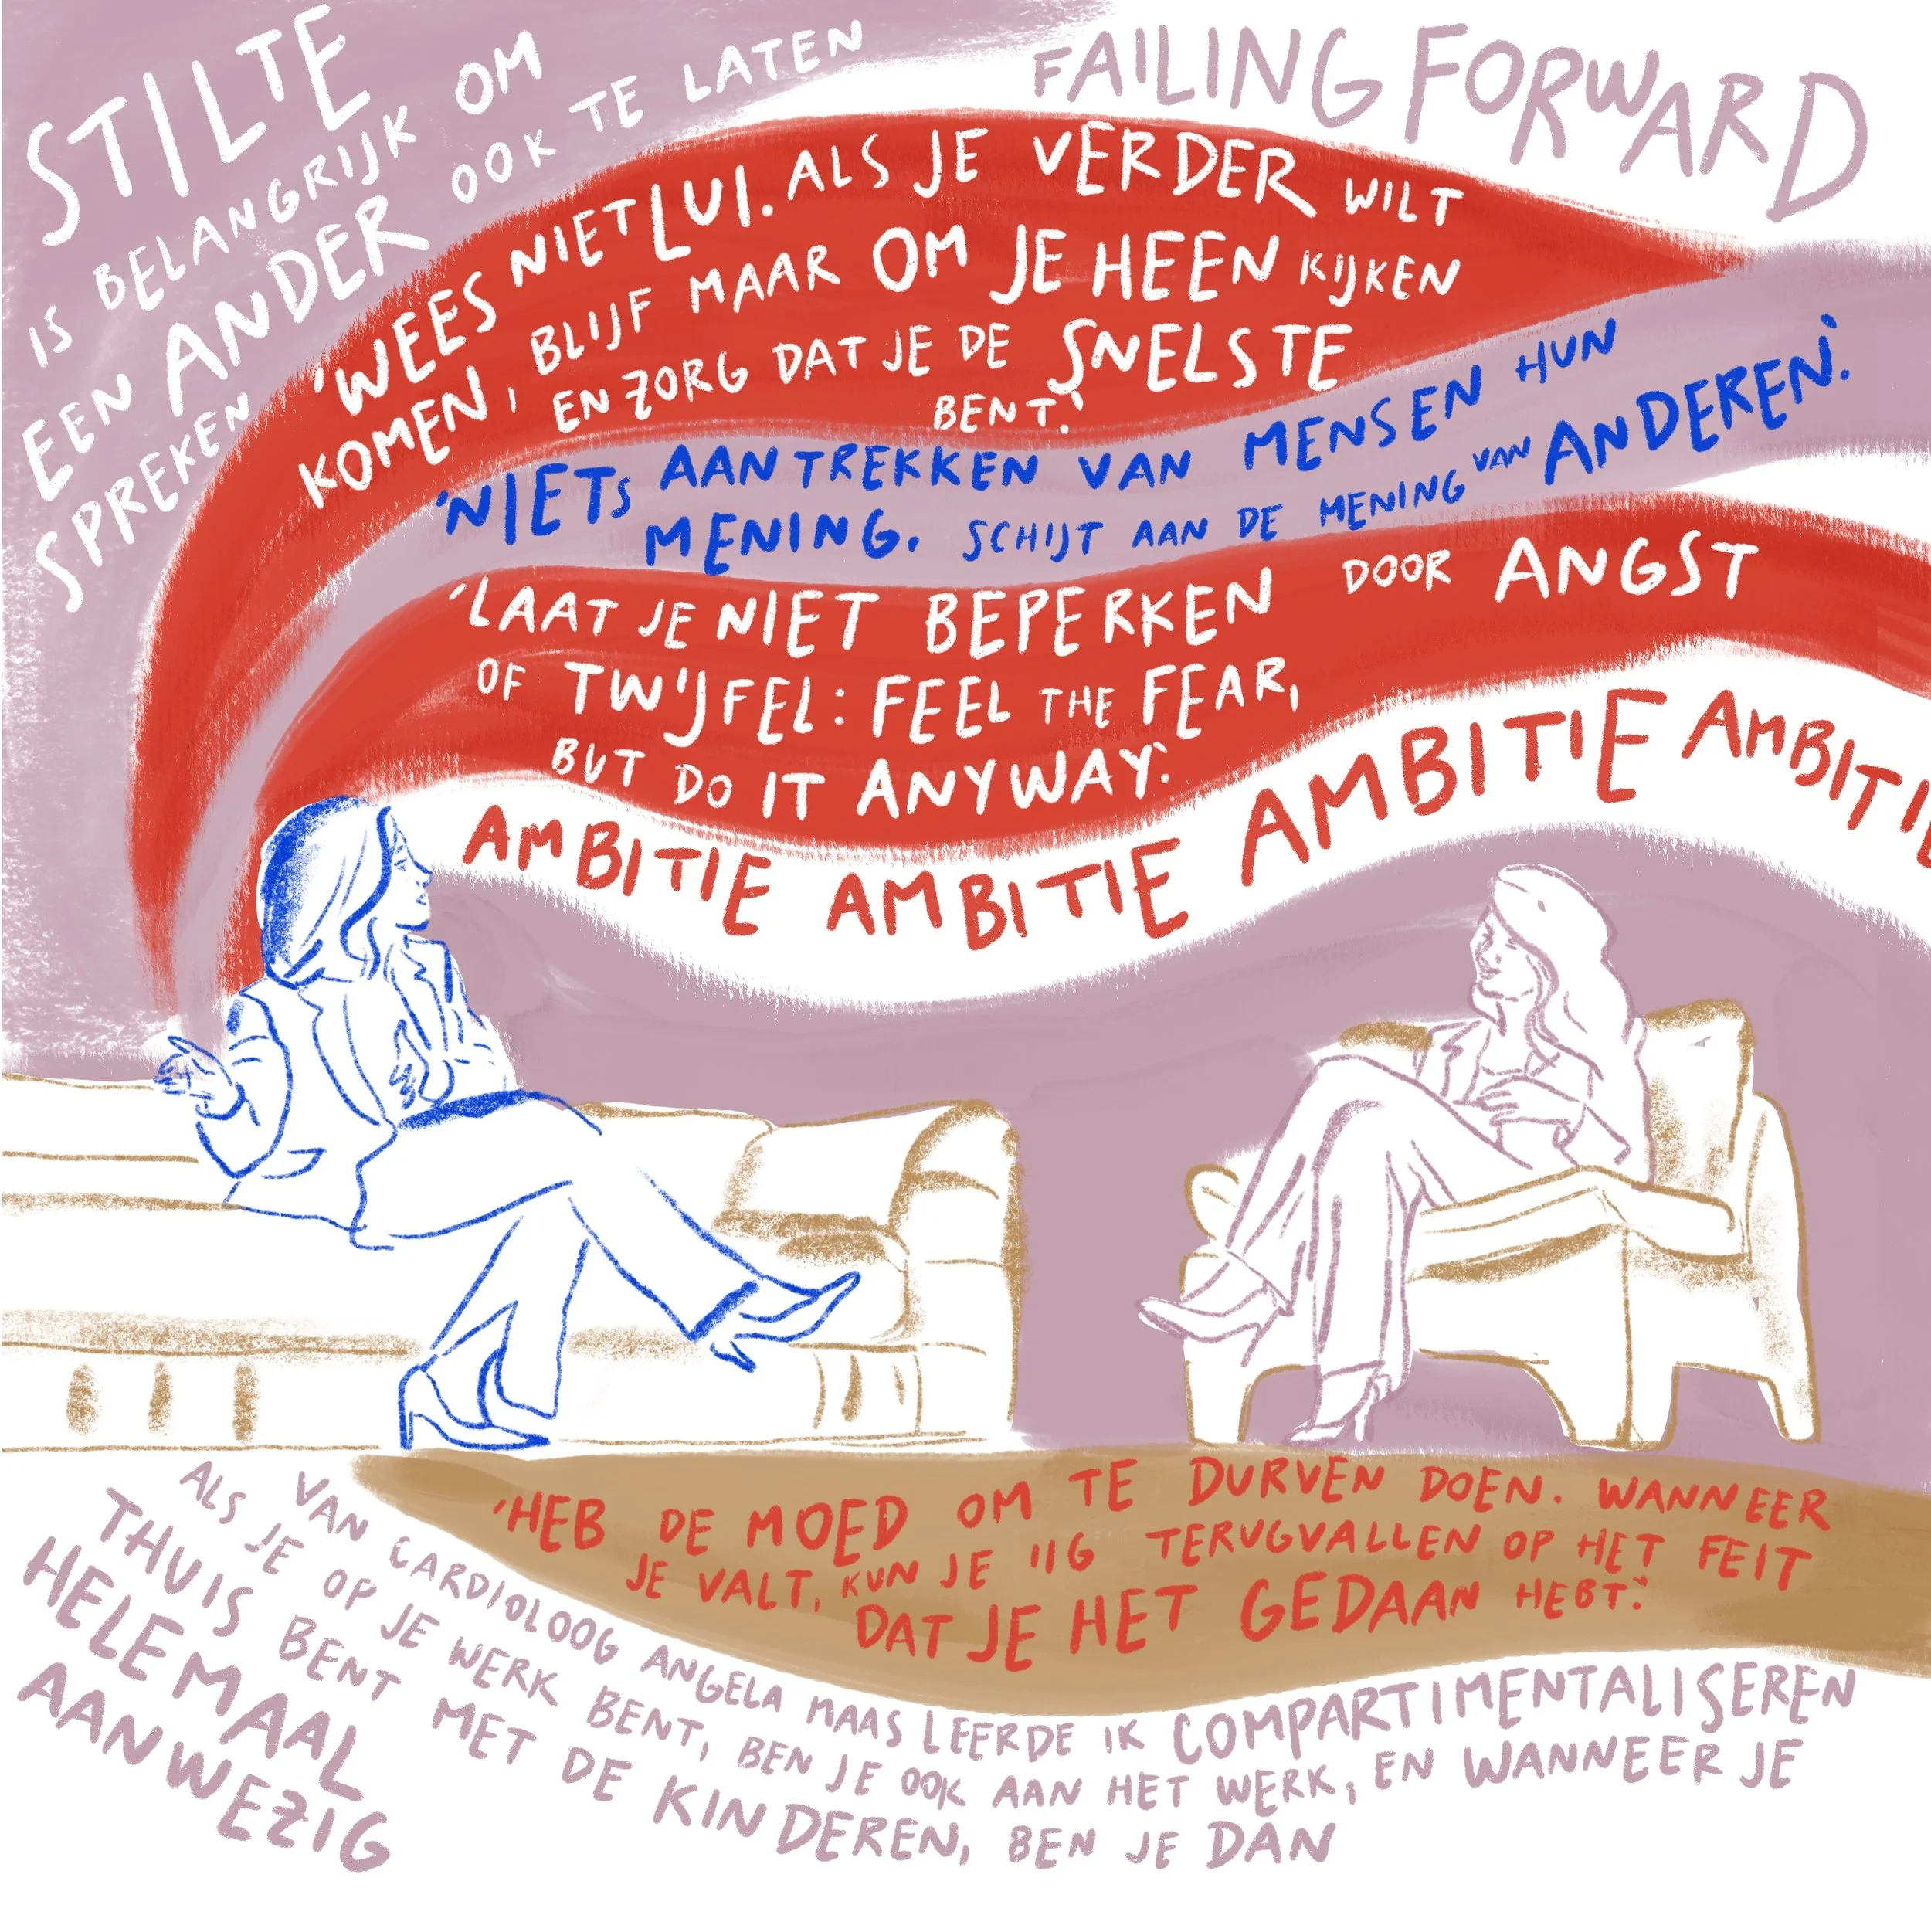 STILTE
IS BELANGRIJK OM
EEN ANDER OOK TE LATEN
SPREKEN
FAILING FORWARD
'WEES NIET LUI. ALS JE VERDER WILT
KOMEN, BLIJF MAAR OM JE HEEN KIJKEN
EN ZORG DAT JE DE SNELSTE
BENT.'
'NIETS AANTREKKEN VAN MENSEN HUN
MENING. SCHIJT AAN DE MENING VAN ANDEREN.'
'LAAT JE NIET BEPERKEN DOOR ANGST
OF TWIJFEL: FEEL THE FEAR,
BUT DO IT ANYWAY.'
AMBITIE AMBITIE AMBITIE AMBITIE
'HEB DE MOED OM TE DURVEN DOEN. WANNEER
JE VALT, KUN JE IIG TERUGVALLEN OP HET FEIT
DAT JE HET GEDAAN HEBT.'
VAN CARDIOLOOG ANGELA MAAS LEERDE IK COMPARTIMENTALISEREN
ALS JE OP JE WERK BENT, BEN JE OOK AAN HET WERK, EN WANNEER JE
THUIS BENT MET DE KINDEREN, BEN JE DAN
HELEMAAL
AANWEZIG